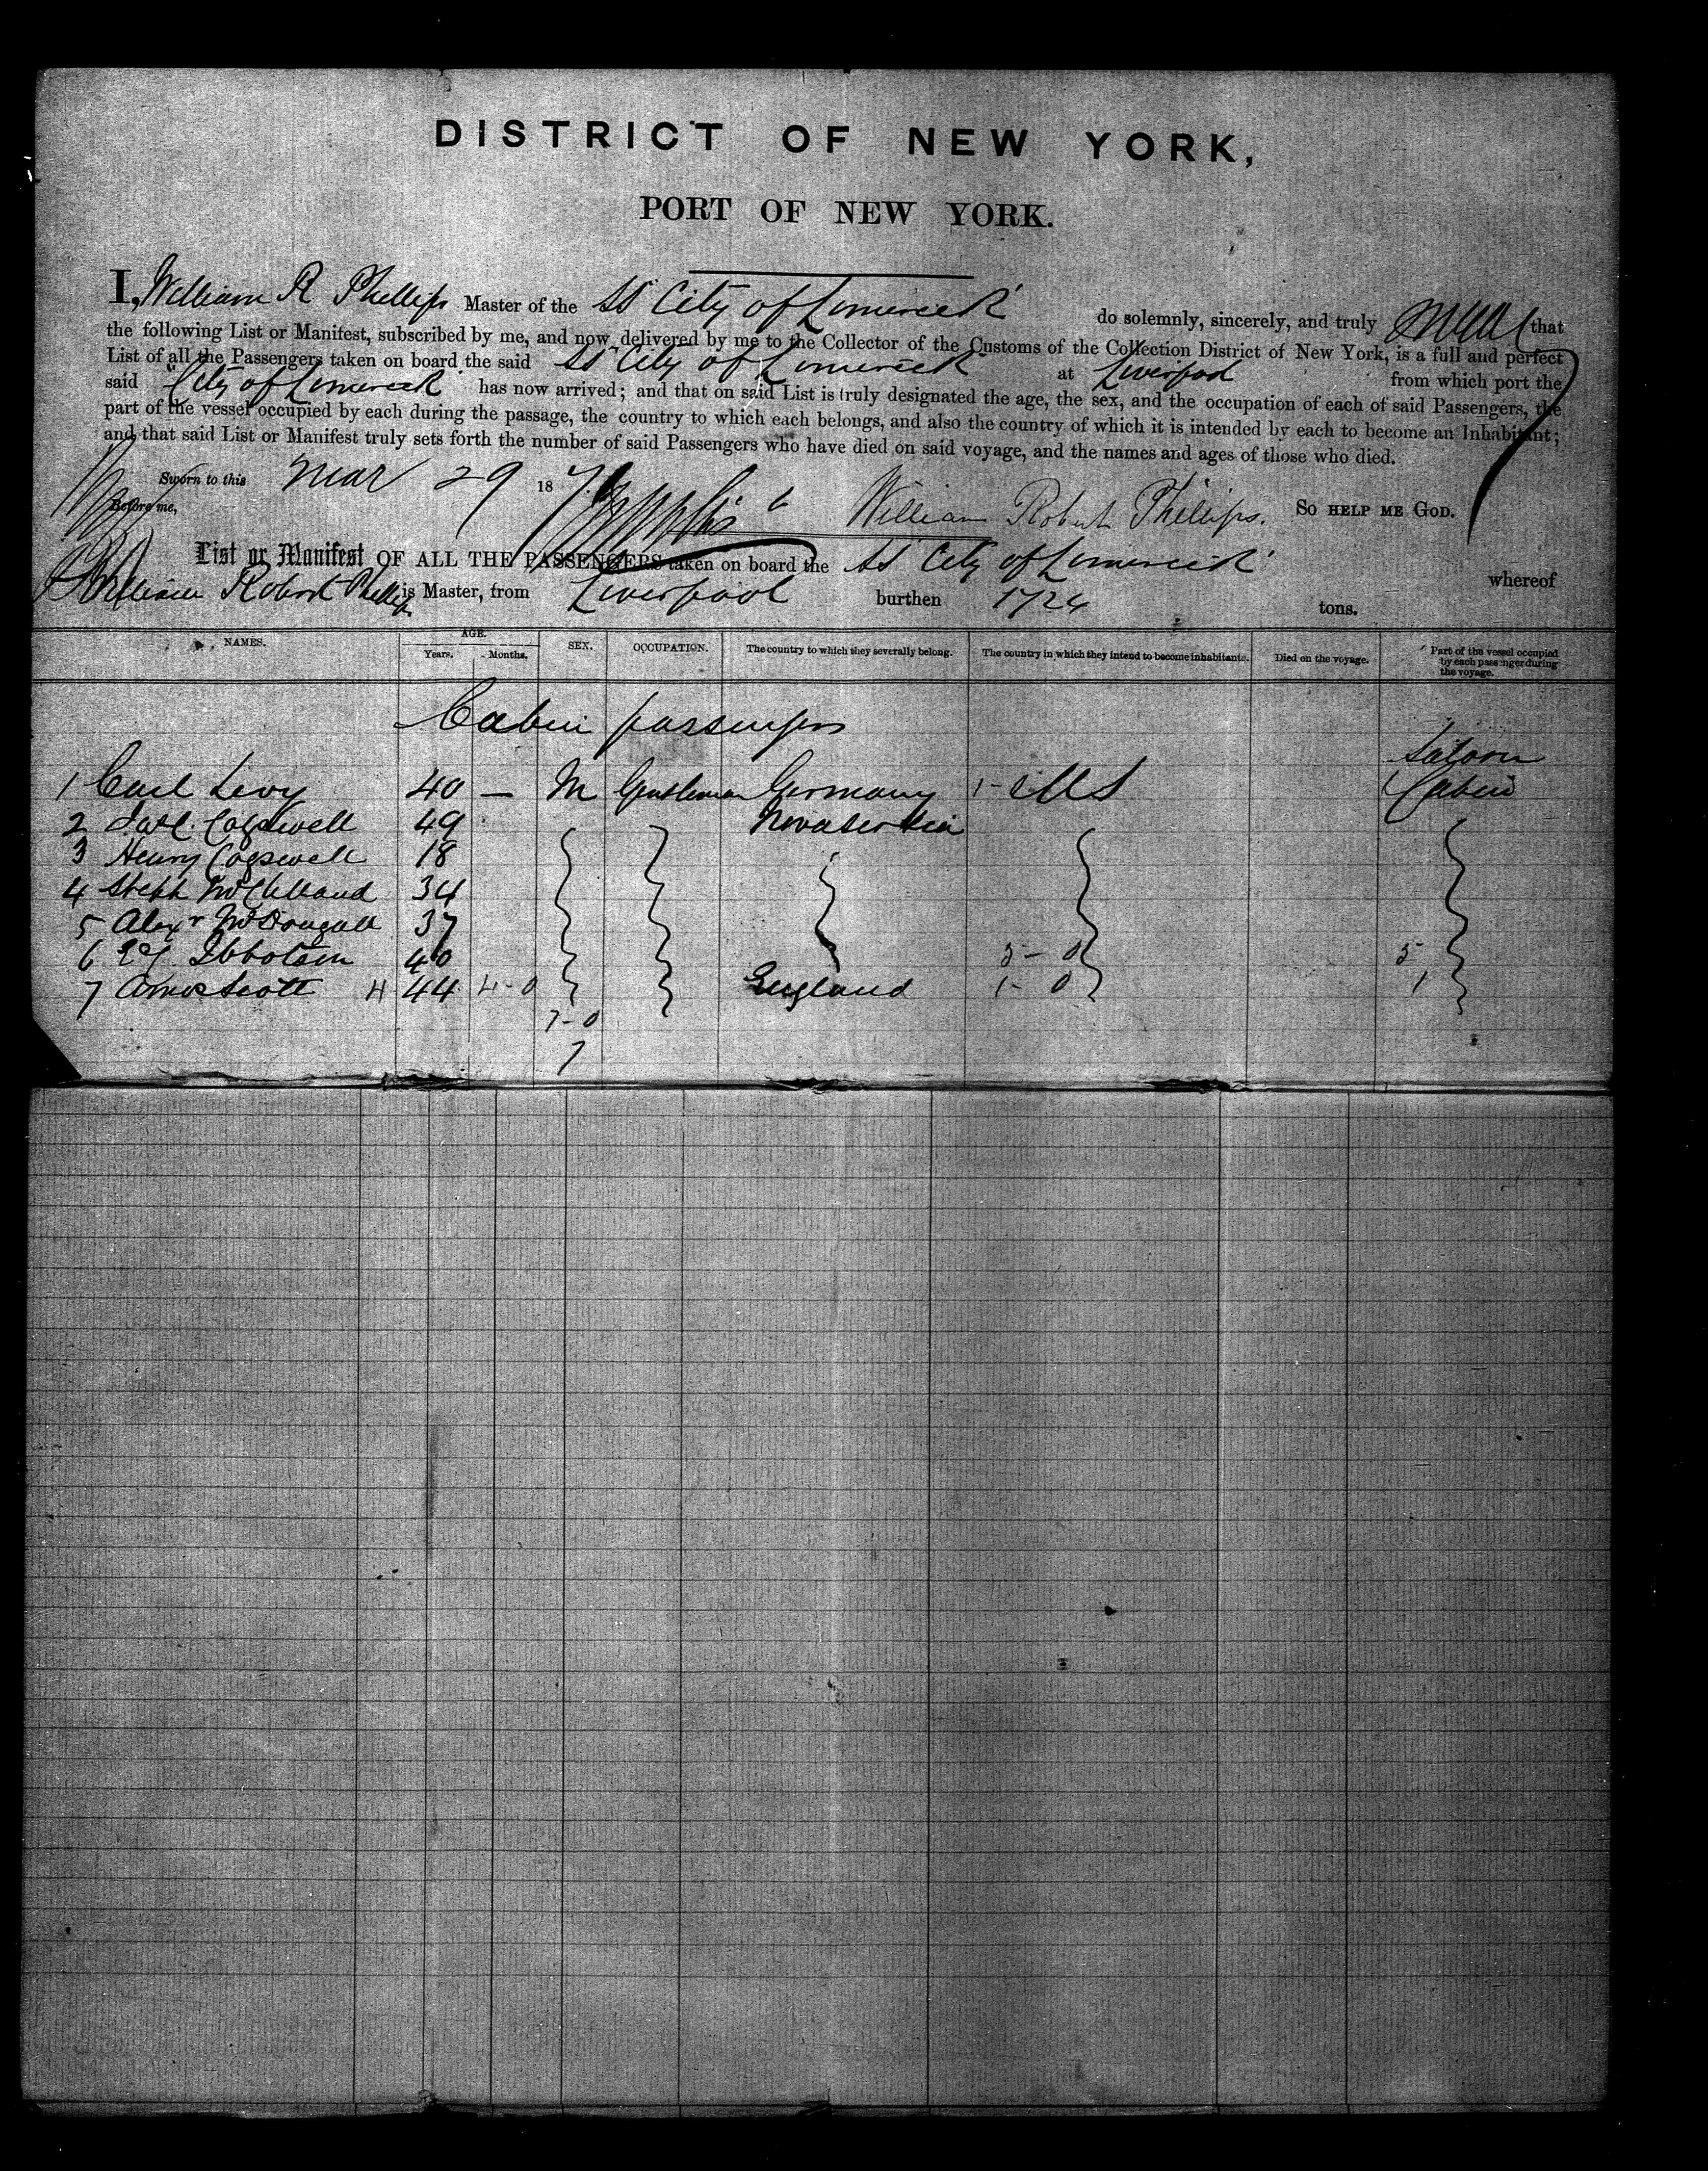 DISTRICT OF NEW YORK,
PORT OF NEW YORK.
I, William R Phillips Master of the SS City of Limerick do solemnly, sincerely, and truly swear that
the following List or Manifest, subscribed by me, and now delivered by me to the Collector of the Customs of the Collection District of New York, is a full and perfect
List of all the Passengers taken on board the said SS City of Limerick at Liverpool from which port the
said "City of Limerick" has now arrived; and that on said List is truly designated the age, the sex, and the occupation of each of said Passengers, the
part of the vessel occupied by each during the passage, the country to which each belongs, and also the country of which it is intended by each to become an Inhabitant;
and that said List or Manifest truly sets forth the number of said Passengers who have died on said voyage, and the names and ages of those who died.
Sworn to this Mar 29 187
Before me, William Robert Phillips. SO HELP ME GOD.
List or Manifest OF ALL THE PASSENGERS taken on board the SS City of Limerick whereof
William Robert Phillips is Master, from Liverpool burthen 1724 tons.
NAMES. AGE. Years. Months. SEX. OCCUPATION. The country to which they severally belong. The country in which they intend to become inhabitants. Died on the voyage. Part of the vessel occupied by each passenger during the voyage.
Cabin passengers
Saloon
1 Carl Levy 40 — M Gentleman Germany 1- US Cabin
2 Cogswell 49 Nova Scotia
3 Henry Cogswell 18
4 Steph McClelland 34
5 Alexr McDougall 37
6 Ibbotson 40 5-0 5
7 Amos Scott 4 44 4-0 England 1-0 1
7-0
7